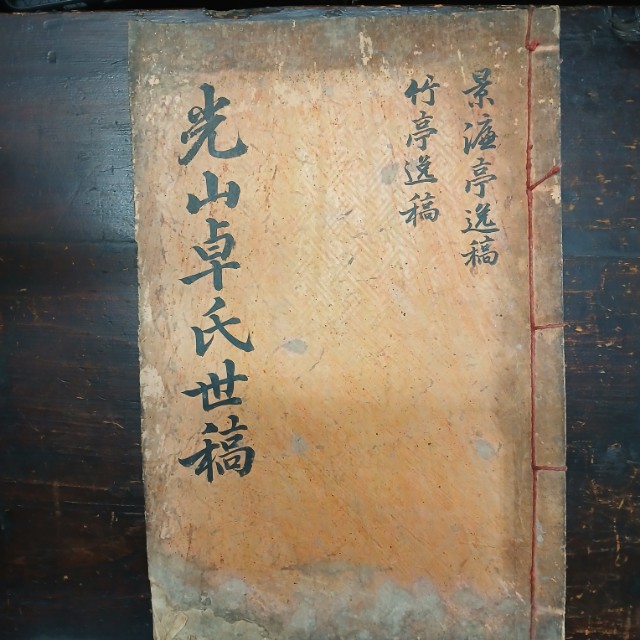 景濂亭逸稿
竹亭逸稿
光山卓氏世稿